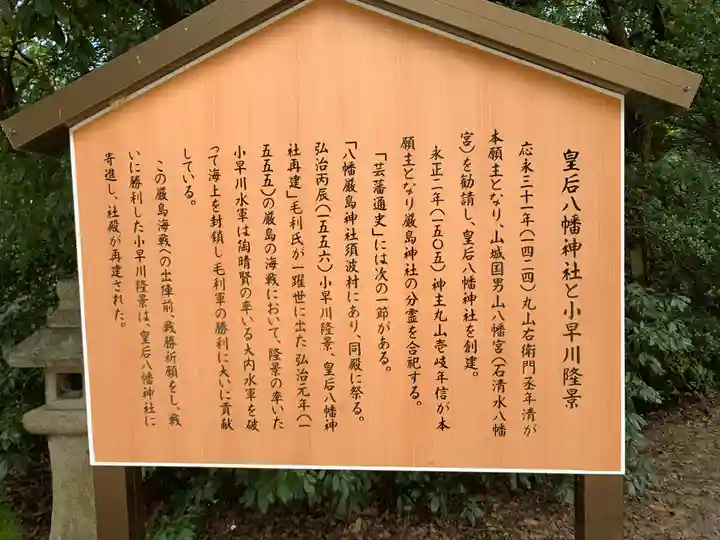 皇后八幡神社と小早川隆景
応永三十一年(一四二四)丸山右衛門丞年清が
本願主となり、山城国男山八幡宮(石清水八幡
宮)を勧請し、皇后八幡神社を創建。
永正二年(一五〇五)神主丸山壱岐年信が本
願主となり厳島神社の分霊を合祀する。
「芸藩通史」には次の一節がある。
「八幡厳島神社須波村にあり、同殿に祭る。
弘治丙辰(一五五六)小早川隆景、皇后八幡神
社再建」毛利氏が一躍世に出た 弘治元年(一
五五五)の厳島の海戦において、隆景の率いた
小早川水軍は陶晴賢の率いる大内水軍を破
って海上を封鎖し毛利軍の勝利に大いに貢献
している。
この厳島海戦への出陣前、戦勝祈願をし、戦
いに勝利した小早川隆景は、皇后八幡神社に
寄進し、社殿が再建された。